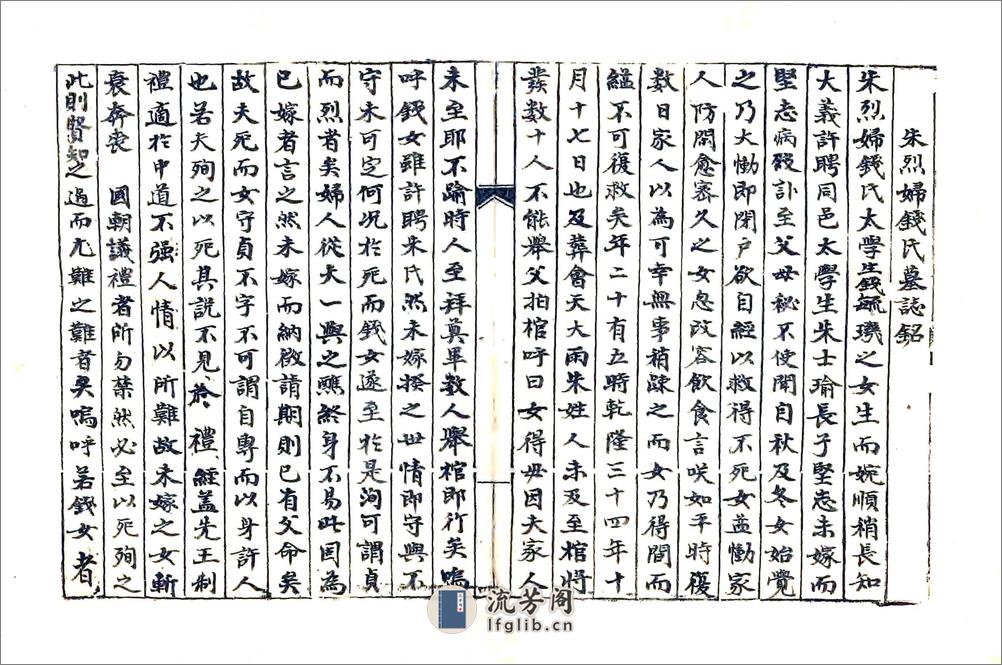 朱烈婦錢氏墓誌銘
朱烈婦錢氏太學生錢毓璣之女生而婉順稍長知
大義許聘同邑太學生朱士瑜長子堅志未嫁而
堅志病歿訃至父母秘不使聞自秋及冬女始覺
之乃大慟即閉戶欲自經以救得不死女益慟家
人防閑愈密久之女忽改容飲食言咲如平時復
數日家人以為可幸無事稍疎之而女乃得間而
縊不可復救矣年二十有五時乾隆三十四年十
月十七日也及葬會天大雨朱姓人未及至棺將
發數十人不能舉父拍棺呼曰女得毋因夫家人
未至耶不踰時人至拜奠畢數人舉棺即行矣嗚
呼錢女雖許聘朱氏然未嫁揆之世情即守與不
守未可定何况於死而錢女遂至於是洵可謂貞
而烈者矣婦人從夫一與之醮終身不易此固為
已嫁者言之然未嫁而納徵請期則已有父命矣
故夫死而女守貞不字不可謂自專而以身許人
也若夫殉之以死其說不見於禮經盖先王制
禮適於中道不强人情以所難故未嫁之女斬
衰奔喪 國朝議禮者所勿禁然必至以死殉之
此則賢知之過而尤難之難者矣嗚呼若錢女者
流芳阁
lfglib.cn